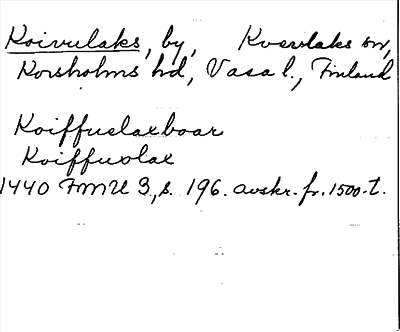 Koivulaks, by, Kvevlaks sn,
Korsholms hd, Vasa l., Finland
Koiffuslaxboar
Koiffuslax
1440 FMU 3, s. 196. avskr. fr. 1500-t.